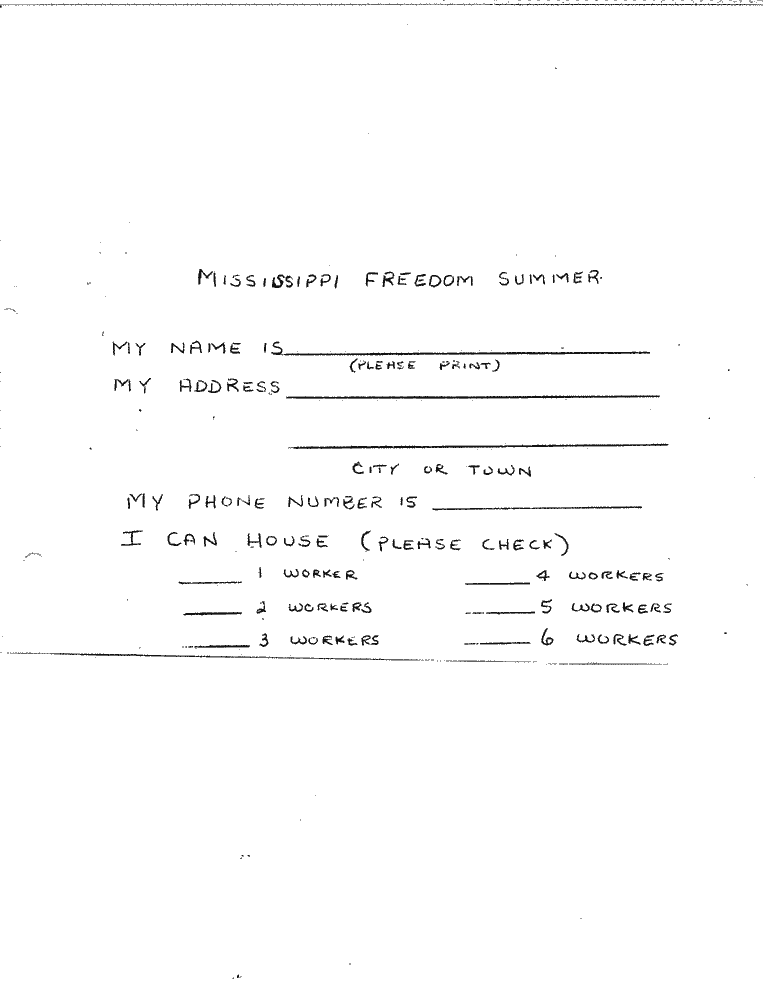 MISSISSIPPI FREEDOM SUMMER
MY NAME IS
(PLEASE PRINT)
MY ADDRESS
CITY OR TOWN
MY PHONE NUMBER IS
I CAN HOUSE (PLEASE CHECK)
1 WORKER 4 WORKERS
2 WORKERS 5 WORKERS
3 WORKERS 6 WORKERS